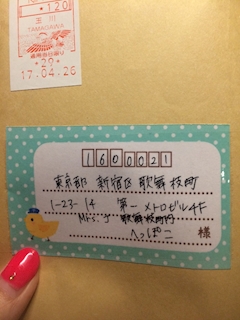 ・120
玉川
TAMAGAWA
29
17.04.26
1600021
東京都 新宿区 歌舞枝町
1-23-14 第一メトロビル4F
Mrs. J 歌舞枝町内
へっぽこ 様